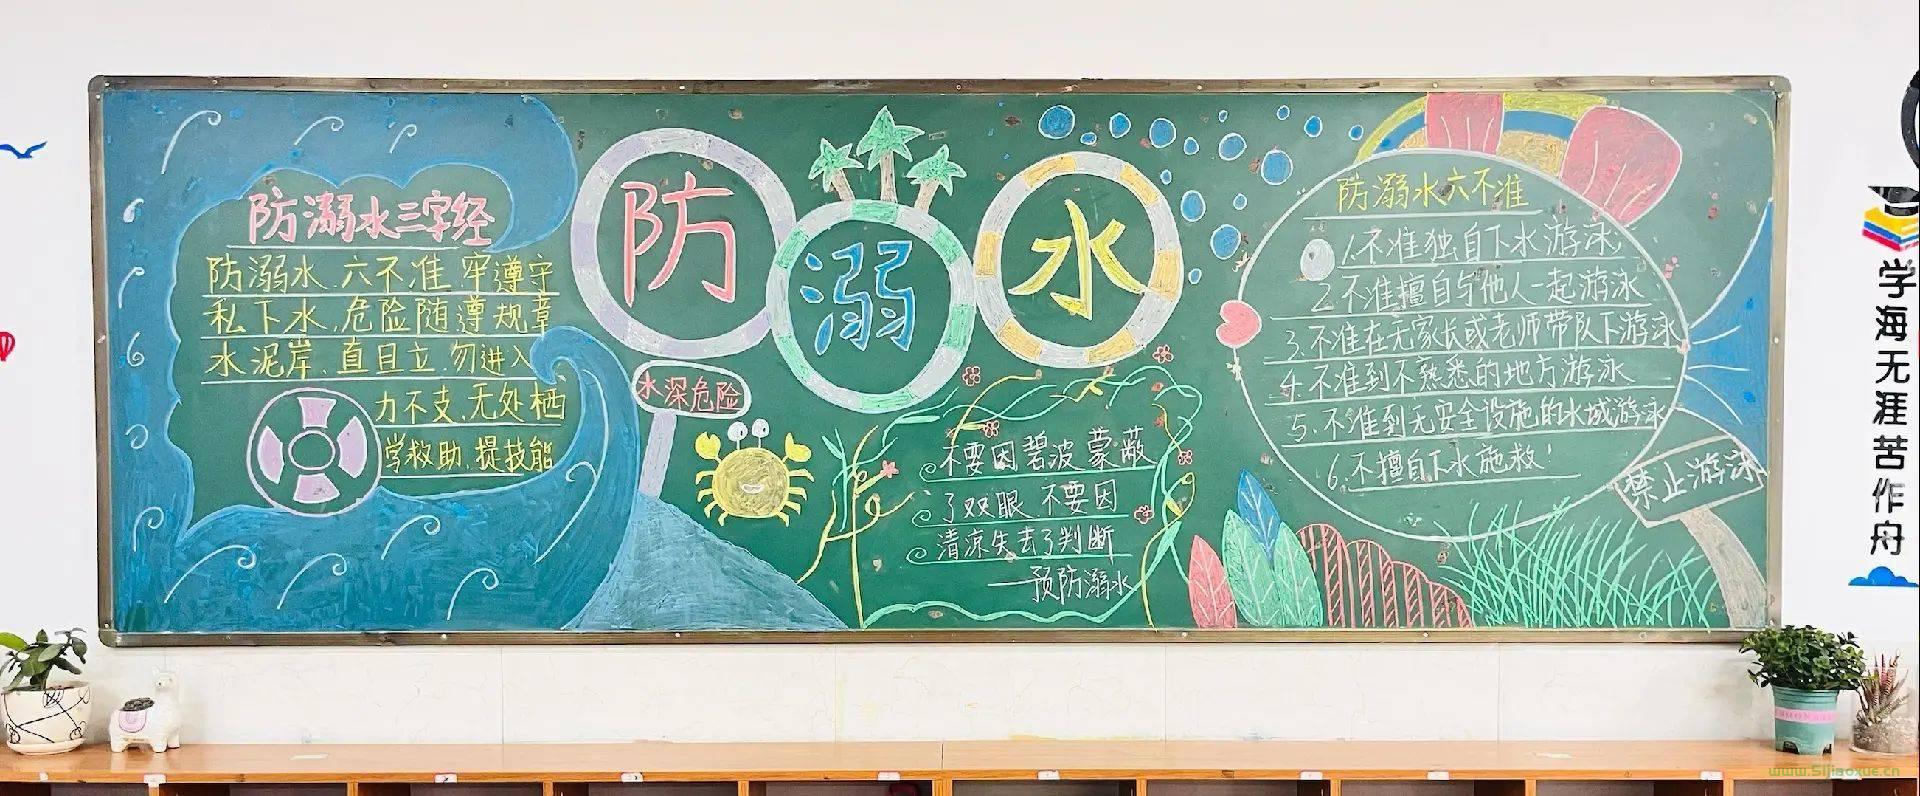 防溺水三字经
防溺水.六不准.牢遵守
私下水,危险随遵规章
水泥岸、直目立.勿进入
力不支、无处栖
学救助、提技能
防溺水
水深危险
不要因碧波蒙蔽
了双眼 不要因
清凉失去了判断
——预防溺水
防溺水六不准
1.不准独自下水游泳
2.不准擅自与他人一起游泳
3.不准在无家长或老师带队下游泳
4.不准到不熟悉的地方游泳
5.不准到无安全设施的水域游泳
6.不擅自下水施救!
禁止游泳
学海无涯苦作舟
www.51jiaoxue.cn